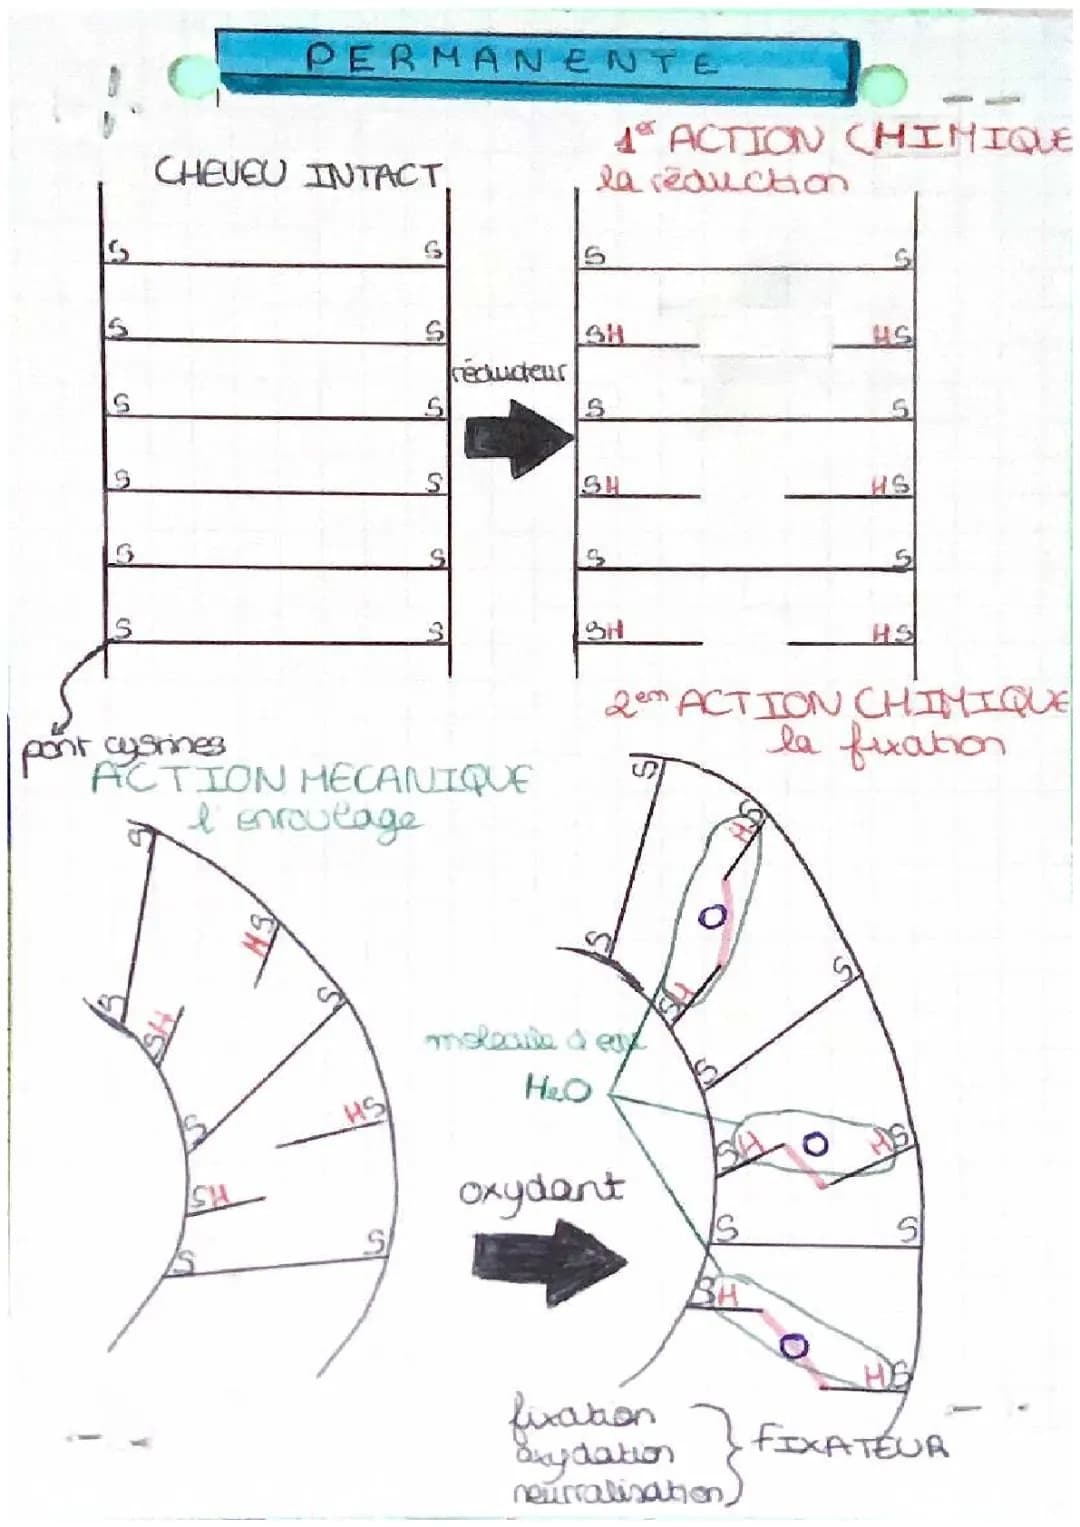 PERMANENTE
CHEVEU INTACT
1er ACTION CHIMIQUE
la réduction
S S
S S
S S
S S
S S
S S
réducteur
S S
SH HS
S S
SH HS
S S
SH HS
pont cystines
ACTION MECANIQUE
l'enroulage
S
HS
S
SH
S
S
HS
SH
S
S
2em ACTION CHIMIQUE
la fixation
S
HS
O
S
SH
S
S
molécule d'eau
H2O
SH O HS
oxydant
S S
SH
O
HS
fixation
oxydation
neutralisation
FIXATEUR